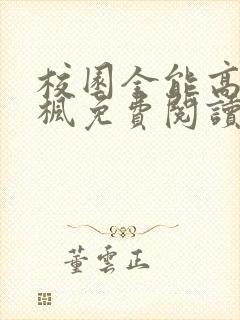 校園全能高
楓免費閱讀
董雲正